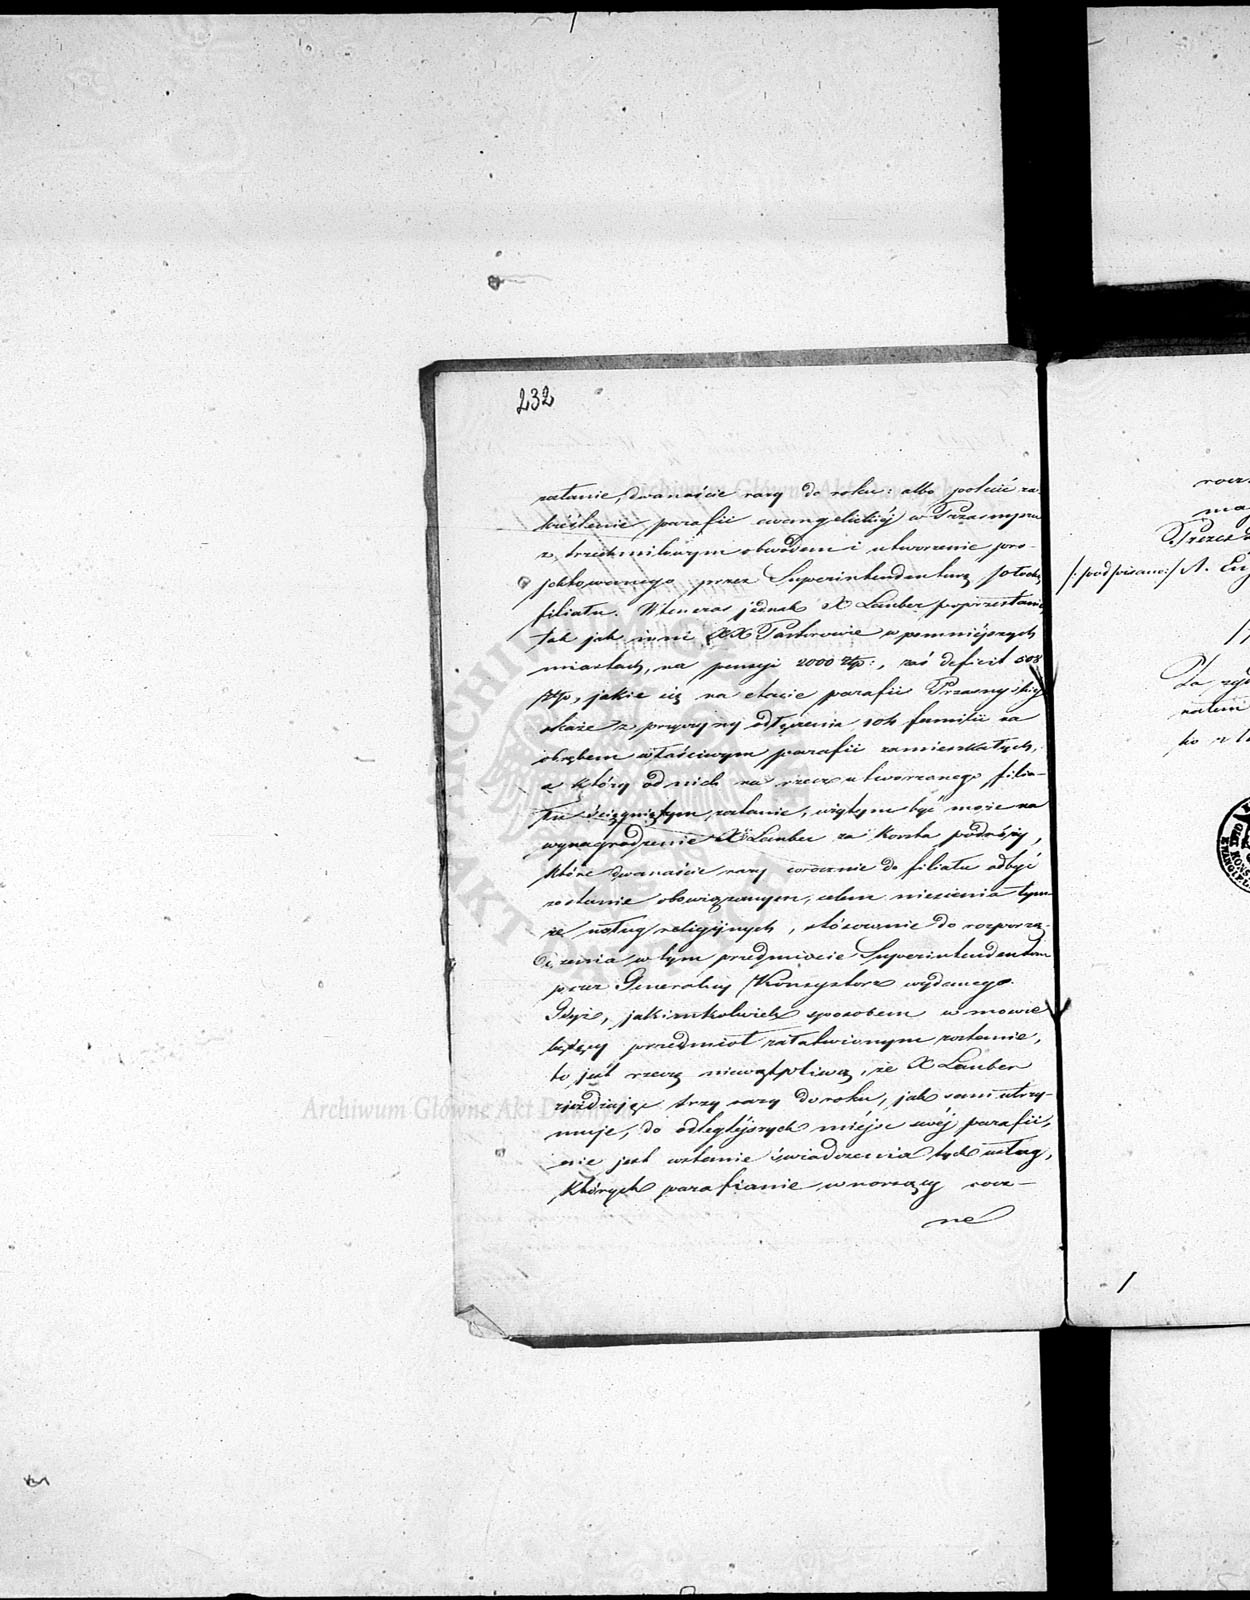 232
zstanie, dwanaście razy do roku: albo polecić za-
kreślenie parafii ewangelickiéj w Przasnyszu
z trzechmilowym obwodem i utworzenie pro-
jektowanego przez Superintendenturę
filiału. Wtenczas jednak X Lauber poprzestanie,
tak jak inni XX Pastorowie w pomniejszych
miastach, na pensyi 2000 złp:, zaś deficit 508
złp, jakie się na etacie parafii Przasnyskiéj
okaże z przyczyny odłączenia 104 familii za
obrębem właściwym parafii zamieszkałych,
a który od nich na rzecz utworzonego filia-
łu ściągniętym zostanie, wziętym być może na
wynagrodzenie X Lauber za koszta podróży,
które dwanaście razy corocznie do filiału odbyć
zostanie obowiązanym, celem niesienia tym-
że usług religijnych, stósownie do rozporzą-
dzenia w tym przedmiocie Superintendentom
przez Generalny Konsystorz wydanego.
Gdyż, jakimkolwiek sposobem w mowie
będący przedmiot załatwionym zostanie,
to jest rzeczą niewątpliwą, że X Lauber
zjeżdżając trzy razy do roku, jak sam utrzy-
muje, do odległéjszych miéjsc swéj parafii,
nie jest wstanie świadczenia tych usług,
których parafianie wnoszący rocz-
ne
rocz
ma
Prezes
/:podpisano:/ A.
Za
ko
Archiwum Główne Akt Dawnych
Archiwum Główne Akt Dawnych
ARCHIWUM GŁÓWNE AKT DAWNYCH